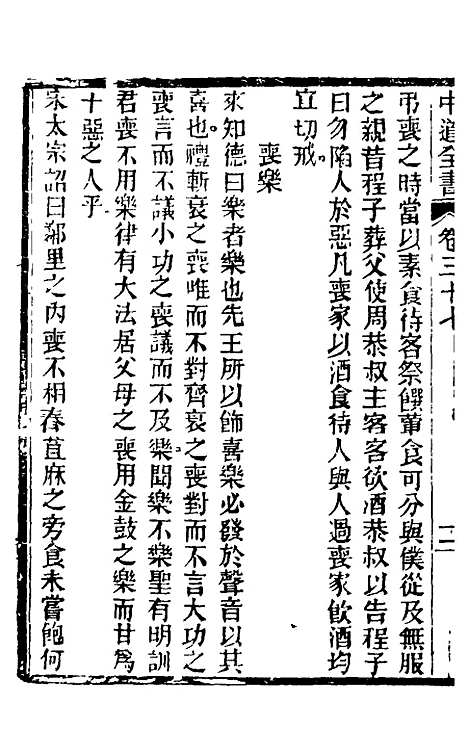 中道全書 卷三十七
弔喪之時當以素食待客祭饌葷食可分與僕從及無服
之親昔程子葬父使周恭叔主客客欲酒恭叔以告程子
曰勿陷人於惡凡喪家以酒食待人與人過喪家飲酒均
宜切戒
喪樂
來知德曰樂者樂也先王所以飾喜樂必發於聲音以其
喜也禮斬衰之喪唯而不對齊衰之喪對而不言大功之
喪言而不議小功之喪議而不及樂聞樂不樂聖有明訓
君喪不用樂律有大法居父母之喪用金鼓之樂而甘為
十惡之人乎
宋太宗詔曰鄰里之內喪不相舂苴麻之旁食未嘗飽何